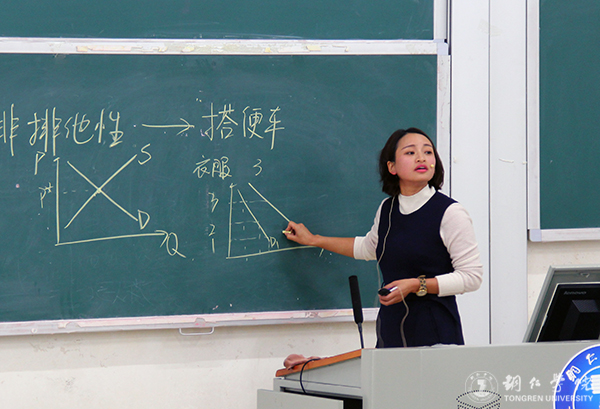 非排他性 → 搭便车
P
S
P*
D
Q
衣服 3
3
2
1
D
铜仁学院
TONGREN UNIVERSITY